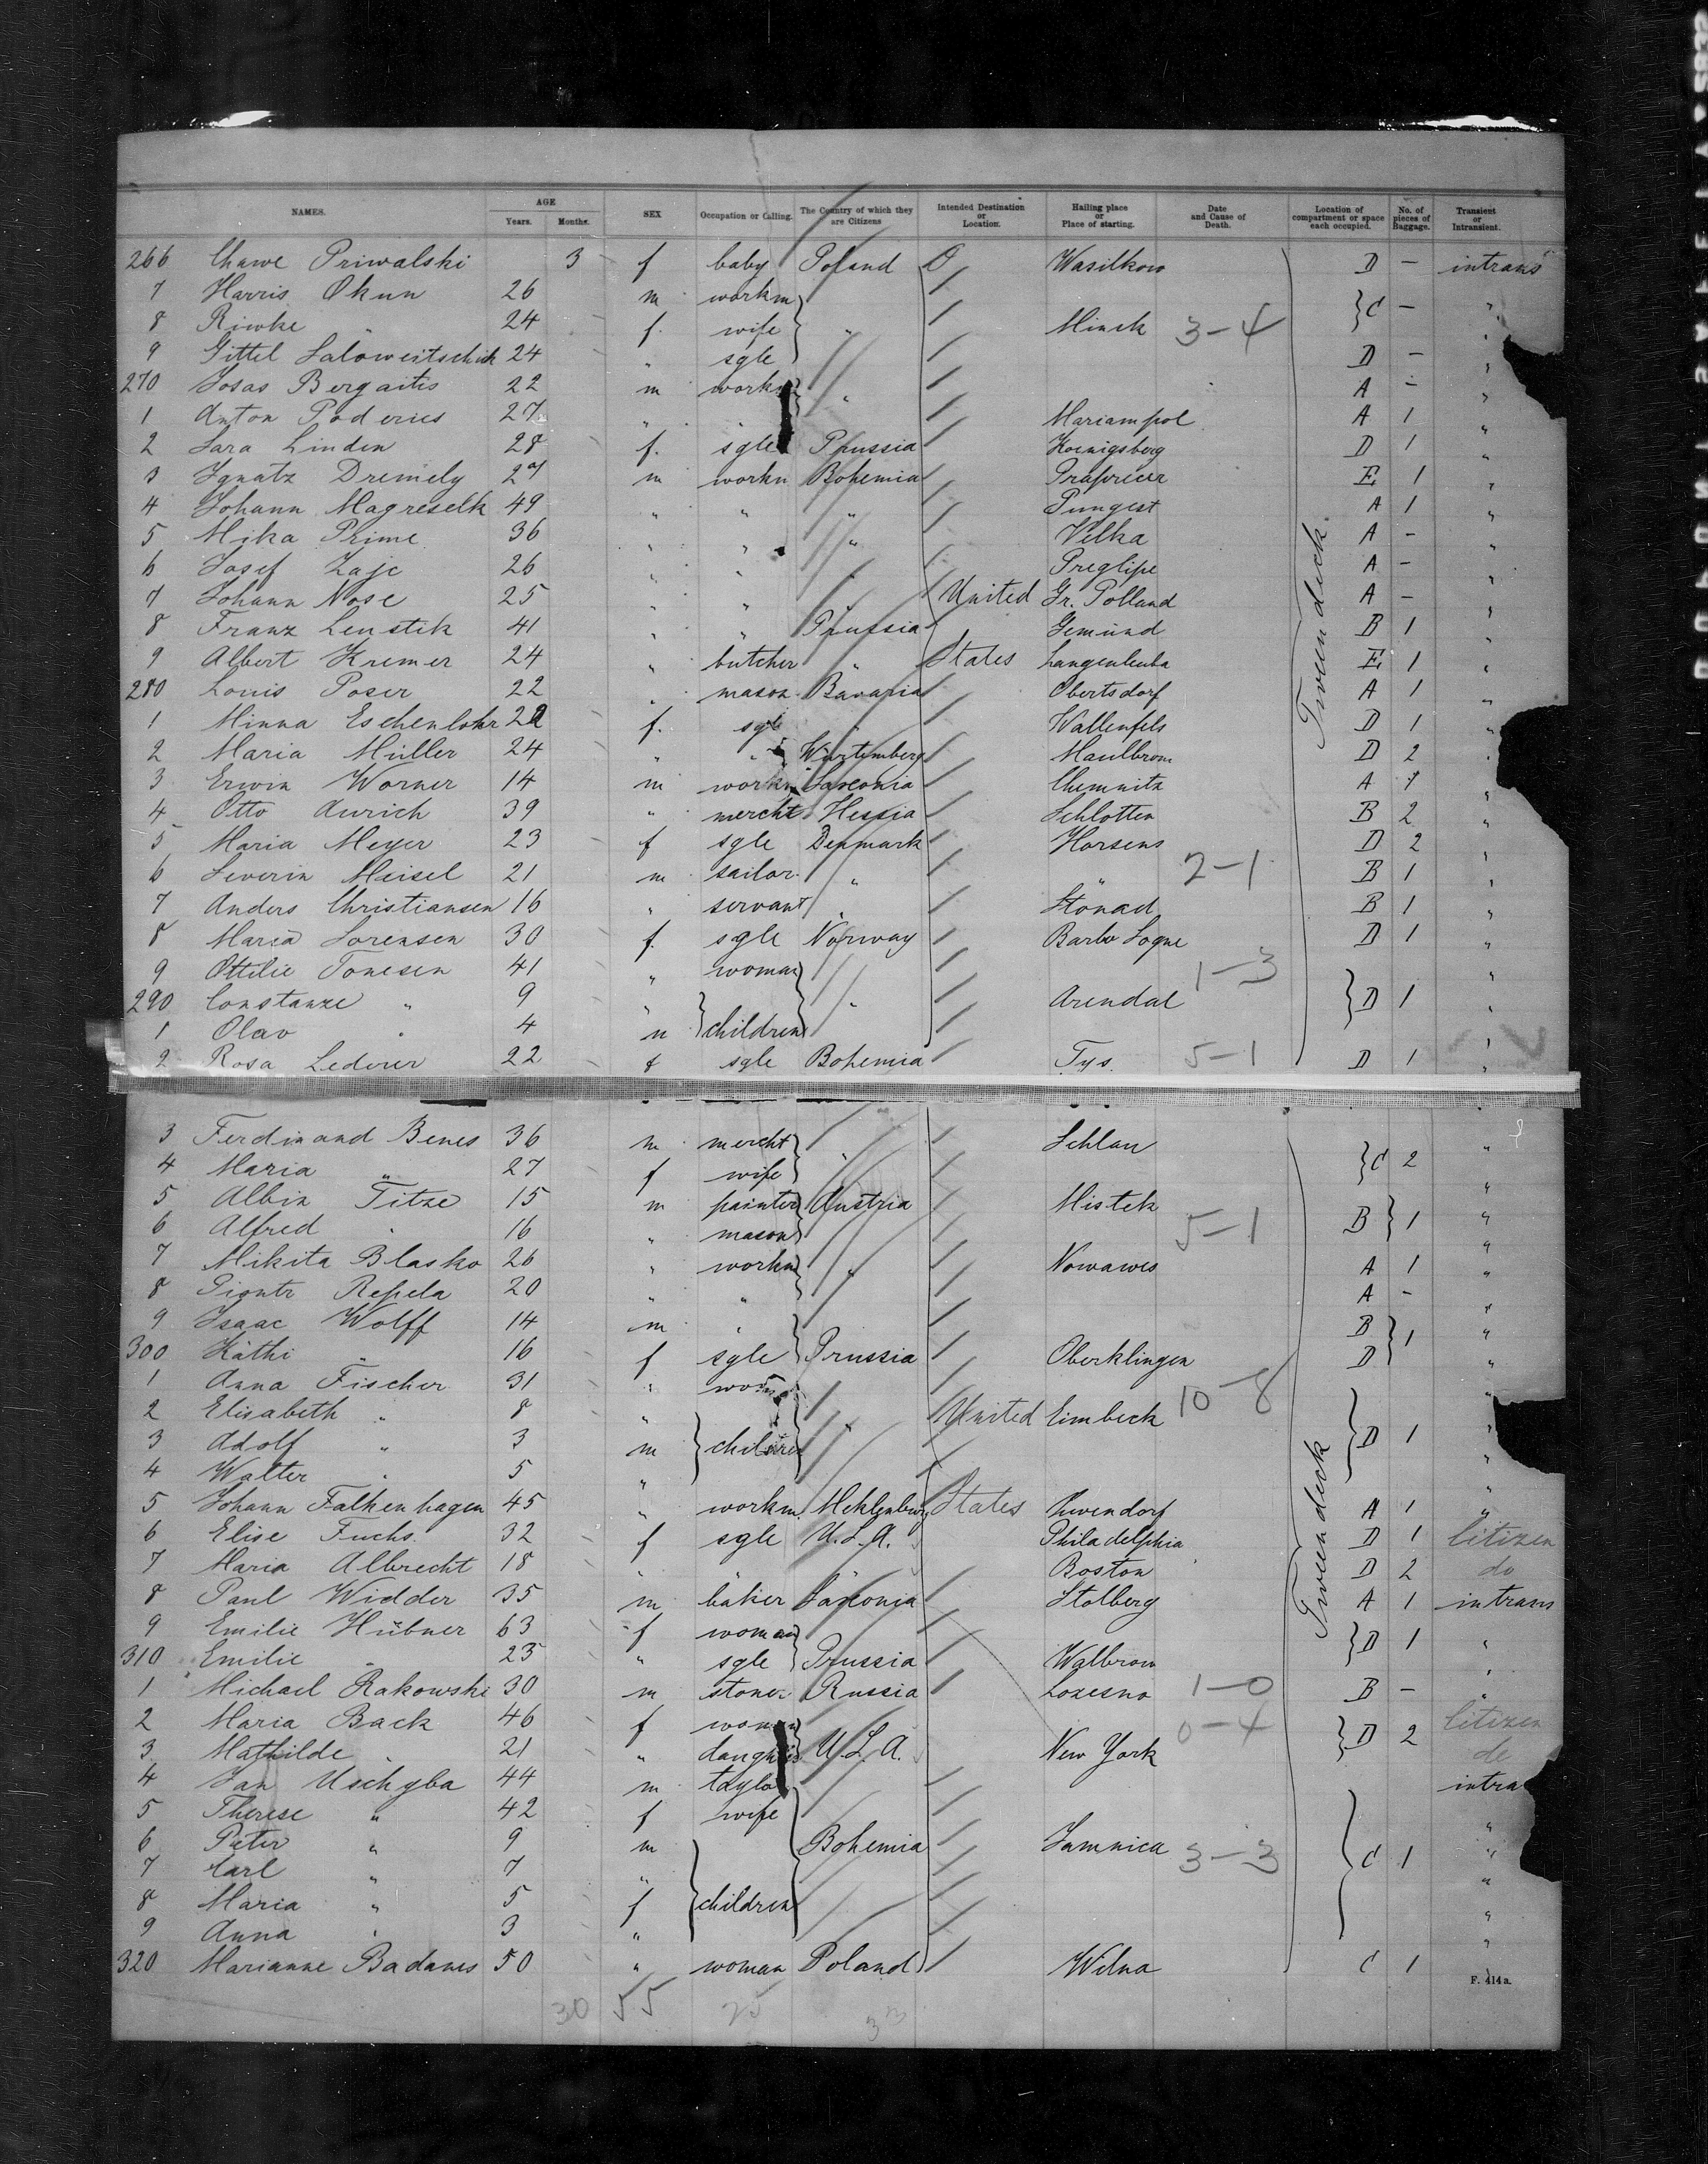 NAMES. AGE Years. Months. SEX Occupation or Calling. The Country of which they are Citizens Intended Destination or Location. Hailing place or Place of starting. Date and Cause of Death. Location of compartment or space each occupied. No. of pieces of Baggage. Transient or Intransient.
266 Chawe Priwalski 3 f baby Poland Wasilkow D — intrans
7 Harris Okun 26 m workm
8 Riwke " 24 f. wife " Minsk 3-4 C — "
9 Gittel 24 " sgle D — "
270 Josas Bergaitis 22 m workm " A — "
1 Anton 27 " " Mariampol A 1 "
2 Sara Linden 28 f. sgle Prussia Koenigsberg D 1 "
3 Ignatz Dremely 27 m workm Bohemia E 1 "
4 Johann Magreselk 49 " " " Pungert A 1 "
5 Mika Prime 36 " " " Velka A — "
6 Josef Zajc 26 " " " Preglipe A — "
7 Johann Nose 25 " " " United Gr. Polland A — "
8 Franz Leustik 41 " " Prussia Gemünd B 1 "
9 Albert Kremer 24 " butcher " States Langenleuba E 1 "
280 Louis Poser 22 " mason Bavaria Obertsdorf A 1 "
1 Minna Eschenlohr 22 f. sgle " Wallenfels D 1 "
2 Maria Müller 24 " " Würtemberg Maulbronn D 2 "
3 Erwin Worner 14 m workm Saxonia Chemnitz A 1 "
4 Otto Aurich 39 " mercht Hessia Schlotten B 2 "
5 Maria Meyer 23 f sgle Denmark Horsens D 2 "
6 Severin Meisel 21 m sailor " " 2-1 B 1 "
7 Anders Christiansen 16 " servant " Stönad B 1 "
8 Maria Sorensen 30 f. sgle Norway Barbo Sogne D 1 "
9 Ottilie Tonesen 41 " woman 1-3 "
290 Constanze " 9 " children " Arendal D 1 "
1 Olav " 4 m "
2 Rosa Lederer 22 f sgle Bohemia Tys. 5-1 D 1 "
Tweendeck
3 Ferdinand Benes 36 m mercht " Schlan C 2 "
4 Maria " 27 f wife "
5 Albin Titze 15 m painter Austria Mistek B 1 "
6 Alfred " 16 " mason 5-1 "
7 Mikita Blasko 26 " workm " Nowawes A 1 "
8 Piontr Repela 20 " " A — "
9 Isaac Wolff 14 m " B 1 "
300 Käthi " 16 f sgle Prussia Oberklingen D "
1 Anna Fischer 31 " woman 10-8 "
2 Elisabeth " 8 " children " United Eimbeck D 1 "
3 Adolf " 3 m "
4 Walter " 5 " "
5 Johann Falkenhagen 45 " workm. Mcklenburg States A 1 "
6 Elise Fuchs. 32 f sgle U.S.A. Philadelphia D 1 Citizen
7 Maria Albrecht 18 " " " Boston D 2 do
8 Paul Widder 35 m baker Saxonia Stolberg A 1 intrans
9 Emilie Hübner 63 f woman D 1 "
310 Emilie " 23 " sgle Prussia Walbrom "
1 Michael Rakowski 30 m stoner Russia Lozesno 1-0 B — "
2 Maria Back 46 f woman U.S.A. 0-4 D 2 Citizen
3 Mathilde " 21 " New York do
4 Jan Uschyba 44 m taylor
5 Therese " 42 f wife "
6 Peter " 9 m children Bohemia Jamnica 3-3 C 1 "
7 Carl " 7 " "
8 Maria " 5 f "
9 Anna " 3 " "
320 Marianne Badanes 50 " woman Poland Wilna C 1
Tweendeck
F. 414a.
30 55 25 33